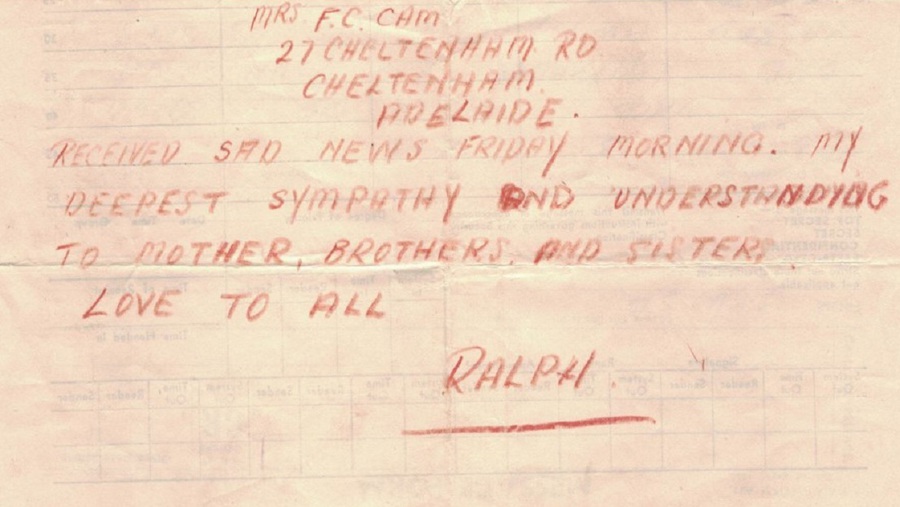 MRS F.C. CAM
27 CHELTENHAM RD
CHELTENHAM.
ADELAIDE.
RECEIVED SAD NEWS FRIDAY MORNING. MY
DEEPEST SYMPATHY AND UNDERSTANDYING
TO MOTHER, BROTHERS, AND SISTERS.
LOVE TO ALL
RALPH.